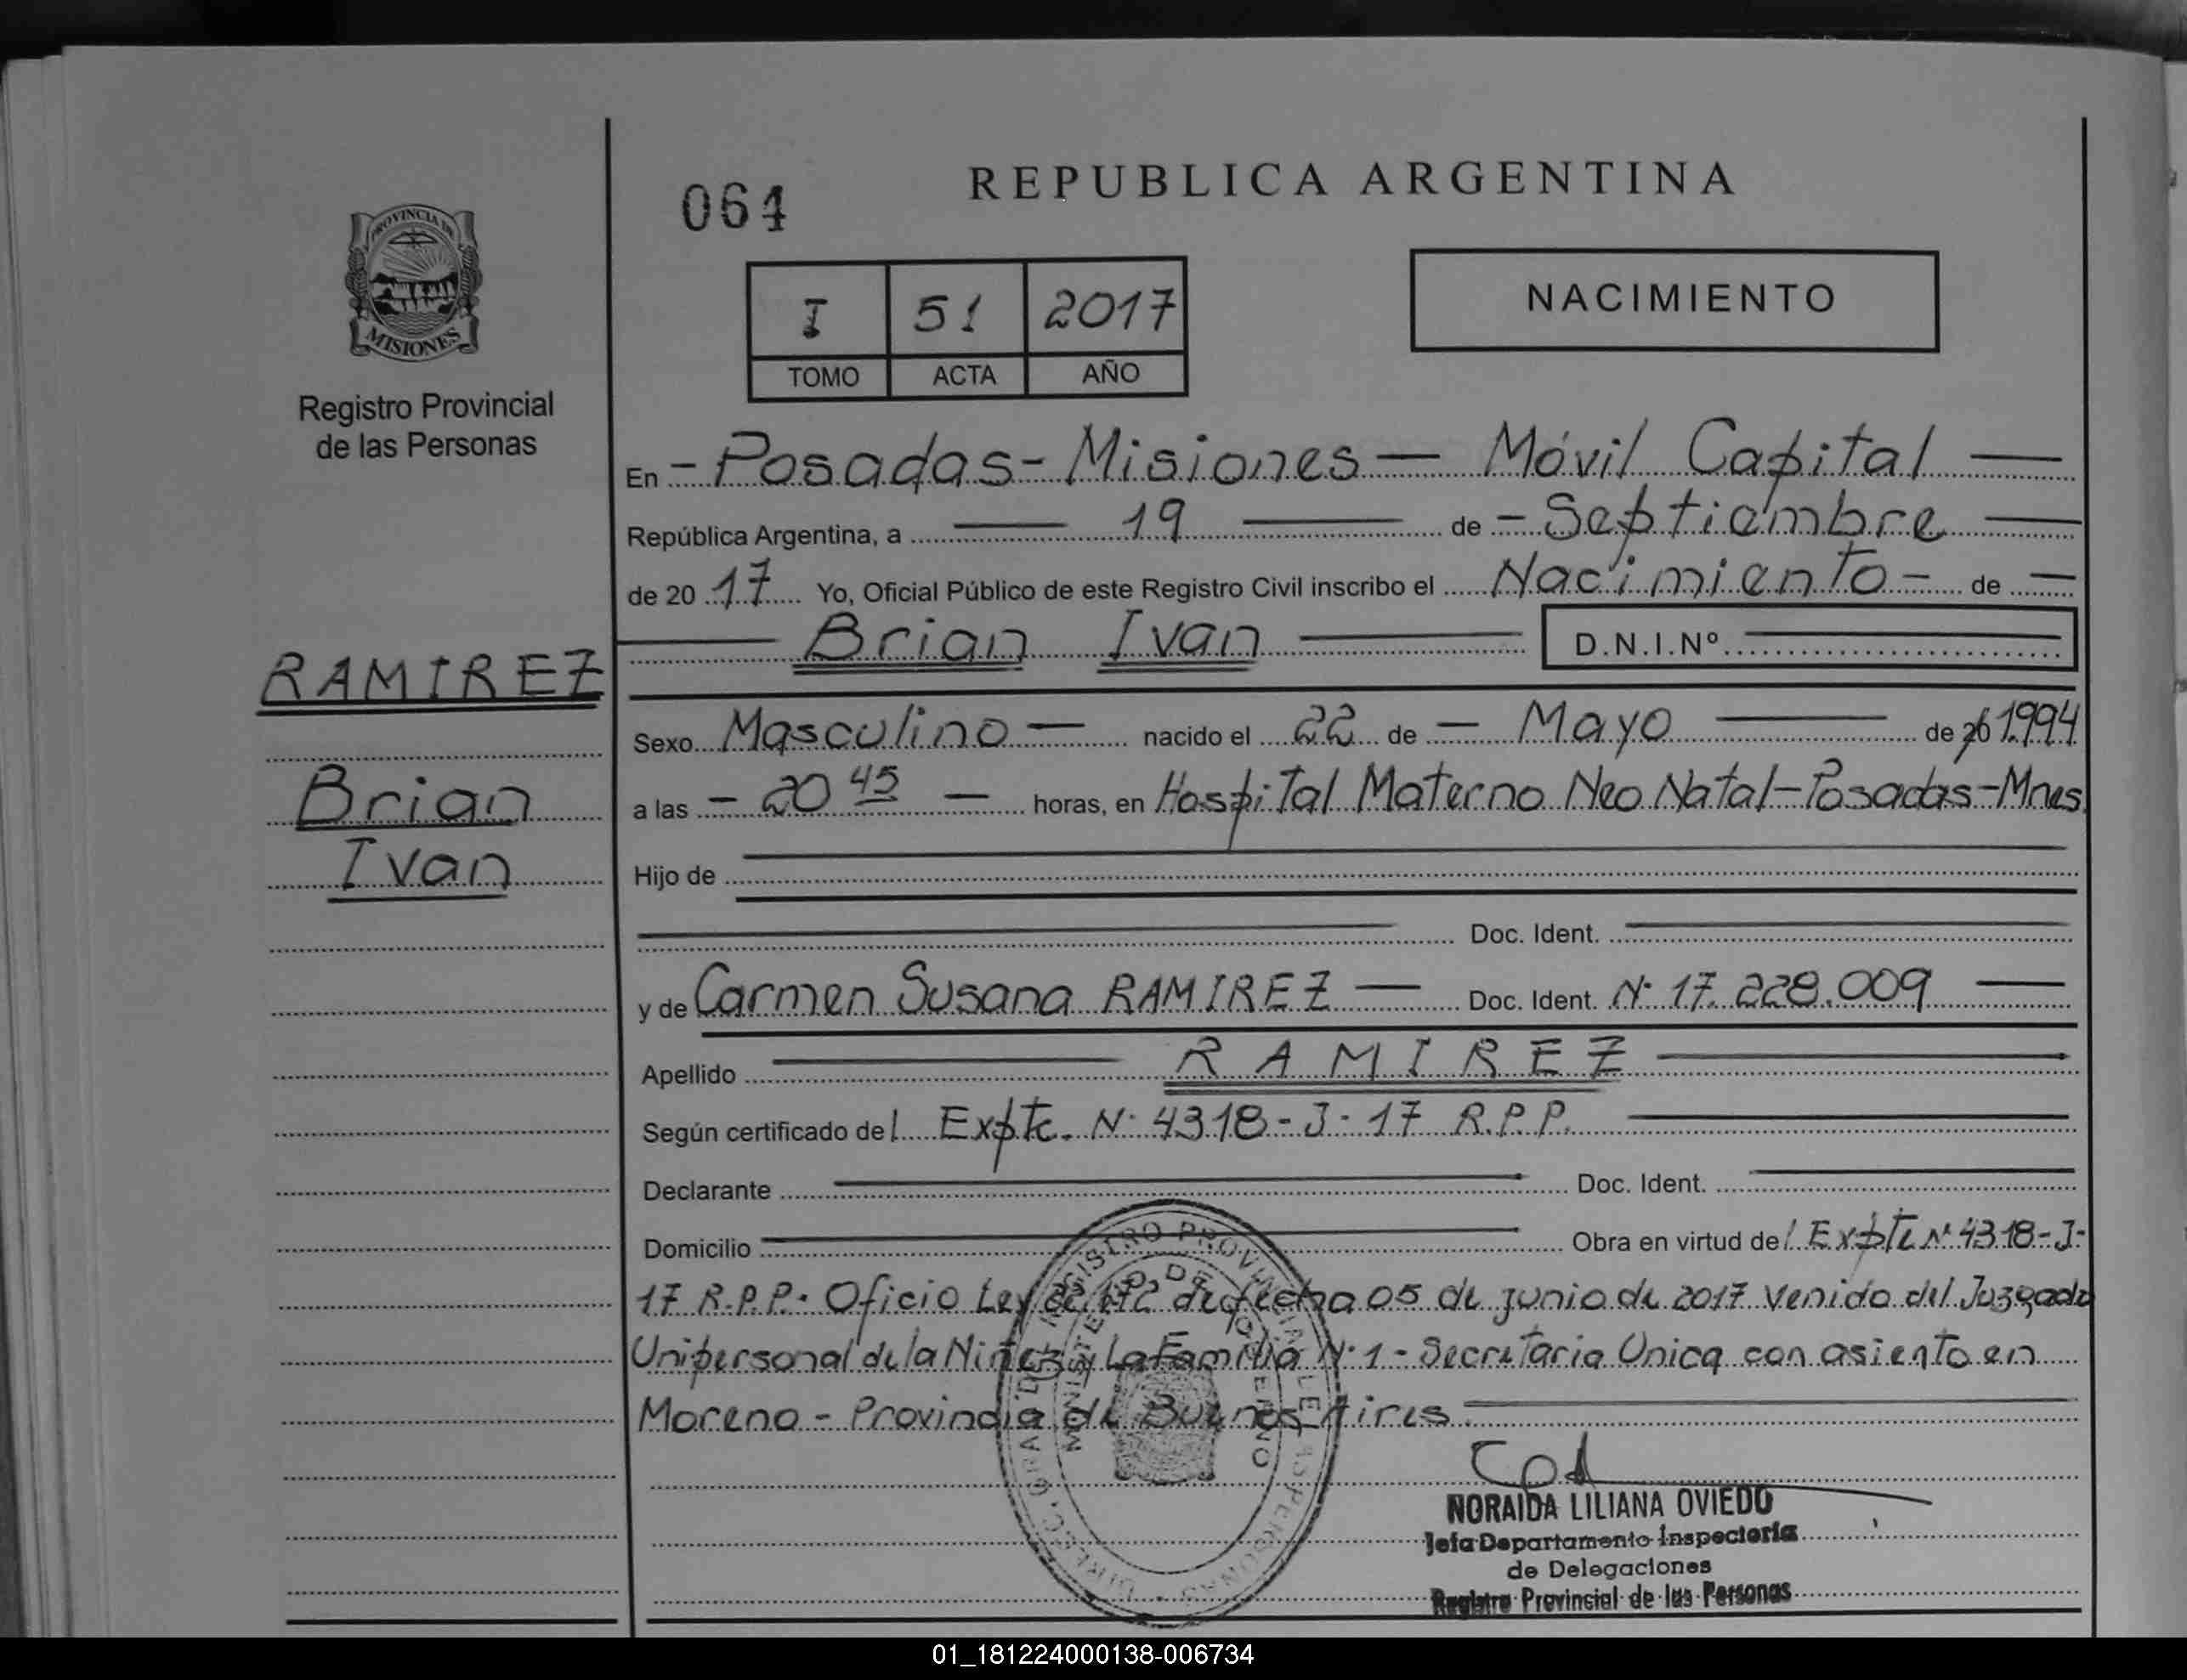 064
REPUBLICA ARGENTINA
PROVINCIA DE
MISIONES
Registro Provincial
de las Personas
I 51 2017
TOMO ACTA AÑO
NACIMIENTO
En - Posadas - Misiones — Móvil Capital —
República Argentina, a — 19 — de - Septiembre —
de 20 17 Yo, Oficial Público de este Registro Civil inscribo el Nacimiento - de —
— Brian Ivan — D.N.I.Nº
RAMIREZ
Brian
Ivan
Sexo Masculino — nacido el 22 de — Mayo — de 20 1994
a las - 20 45 — horas, en Hospital Materno Neo Natal - Posadas - Mnes
Hijo de
Doc. Ident.
y de Carmen Susana RAMIREZ — Doc. Ident. N° 17.228.009 —
Apellido — RAMIREZ —
Según certificado del Expte. N° 4318 - J - 17 R.P.P.
Declarante Doc. Ident.
Domicilio Obra en virtud del Expte N° 4318 - J -
17 R.P.P. Oficio Ley 22.172 de fecha 05 de junio de 2017 venido del Juzgado
Unipersonal de la Niñez y La Familia N° 1 - Secretaria Unica con asiento en
Moreno - Provincia de Buenos Aires.
REGISTRO PROVINCIAL DE LAS PERSONAS
MINISTERIO DE GOBIERNO
NORAIDA LILIANA OVIEDO
Jefa Departamento Inspectoría
de Delegaciones
Registro Provincial de las Personas
01_181224000138-006734